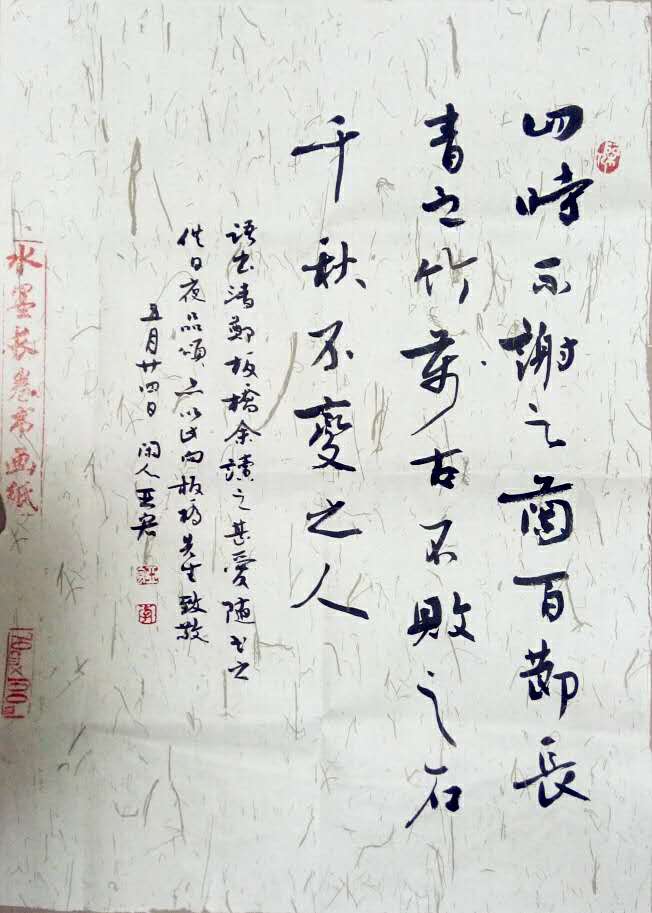 四時不謝之蘭百節長
青之竹萬古不敗之石
千秋不變之人
語出清鄭板橋余讀之甚愛隨書之
供日夜品頌亦以此向板橋先生致敬
五月廿四日 闲人王
水墨长卷书画纸